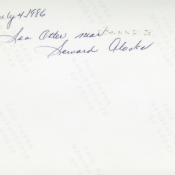 July 4, 1986
Sea Otter near
Seward Alaska